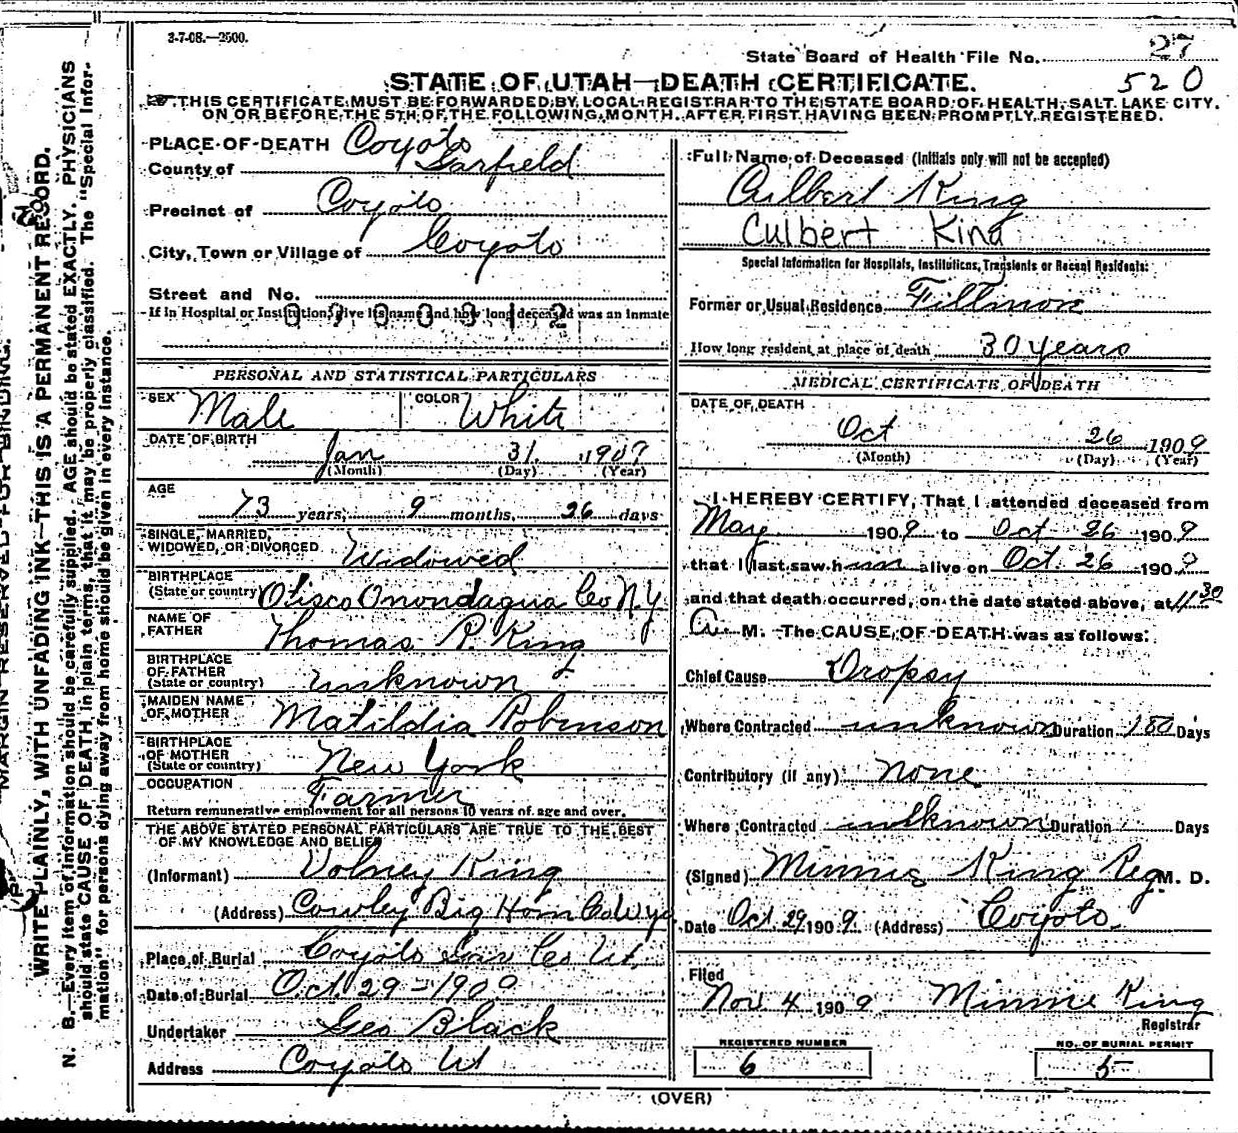 3-7-08.—2500.
State Board of Health File No. 27
520
STATE OF UTAH—DEATH CERTIFICATE.
THIS CERTIFICATE MUST BE FORWARDED BY LOCAL REGISTRAR TO THE STATE BOARD OF HEALTH, SALT LAKE CITY,
ON OR BEFORE THE 5TH OF THE FOLLOWING MONTH, AFTER FIRST HAVING BEEN PROMPTLY REGISTERED.
PLACE OF DEATH Coyoto
County of Garfield
Precinct of Coyoto
City, Town or Village of Coyoto
Street and No.
If in Hospital or Institution, give its name and how long deceased was an inmate
PERSONAL AND STATISTICAL PARTICULARS
SEX Male COLOR White
DATE OF BIRTH Jan 31 1909
(Month) (Day) (Year)
AGE
73 years, 9 months, 26 days
SINGLE, MARRIED,
WIDOWED, OR DIVORCED Widowed
BIRTHPLACE
(State or country) Otisco Onondagua Co N.Y
NAME OF
FATHER Thomas R. King
BIRTHPLACE
OF FATHER
(State or country) unknown
MAIDEN NAME
OF MOTHER Matildia Robinson
BIRTHPLACE
OF MOTHER
(State or country) New York
OCCUPATION Farmer
Return remunerative employment for all persons 10 years of age and over.
THE ABOVE STATED PERSONAL PARTICULARS ARE TRUE TO THE BEST
OF MY KNOWLEDGE AND BELIEF
(Informant) Volney King
(Address) Cowley Big Horn Co Wyo
Place of Burial Coyoto Gar Co Ut.
Date of Burial Oct 29-1909
Undertaker Geo Black
Address Coyoto Ut
Full Name of Deceased (Initials only will not be accepted)
Culbert King
Culbert King
Special Information for Hospitals, Institutions, Transients or Recent Residents:
Former or Usual Residence Fillmore
How long resident at place of death 30 years
MEDICAL CERTIFICATE OF DEATH
DATE OF DEATH
Oct 26 1909
(Month) (Day) (Year)
I HEREBY CERTIFY, That I attended deceased from
May 1909 to Oct 26 1909
that I last saw him alive on Oct. 26 1909
and that death occurred, on the date stated above, at 11 30
A. M. The CAUSE OF DEATH was as follows:
Chief Cause Dropsy
Where Contracted unknown Duration 180 Days
Contributory (if any) none
Where Contracted unknown Duration Days
(Signed) Minnie King Reg M. D.
Date Oct 29 1909. (Address) Coyoto.
Filed
Nov 4 1909 Minnie King
Registrar
REGISTERED NUMBER
6
NO. OF BURIAL PERMIT
5
(OVER)
MARGIN RESERVED FOR BINDING.
WRITE PLAINLY, WITH UNFADING INK—THIS IS A PERMANENT RECORD.
N. B.—Every item of information should be carefully supplied. AGE should be stated EXACTLY. PHYSICIANS
should state CAUSE OF DEATH in plain terms, that it may be properly classified. The "Special Infor-
mation" for persons dying away from home should be given in every instance.